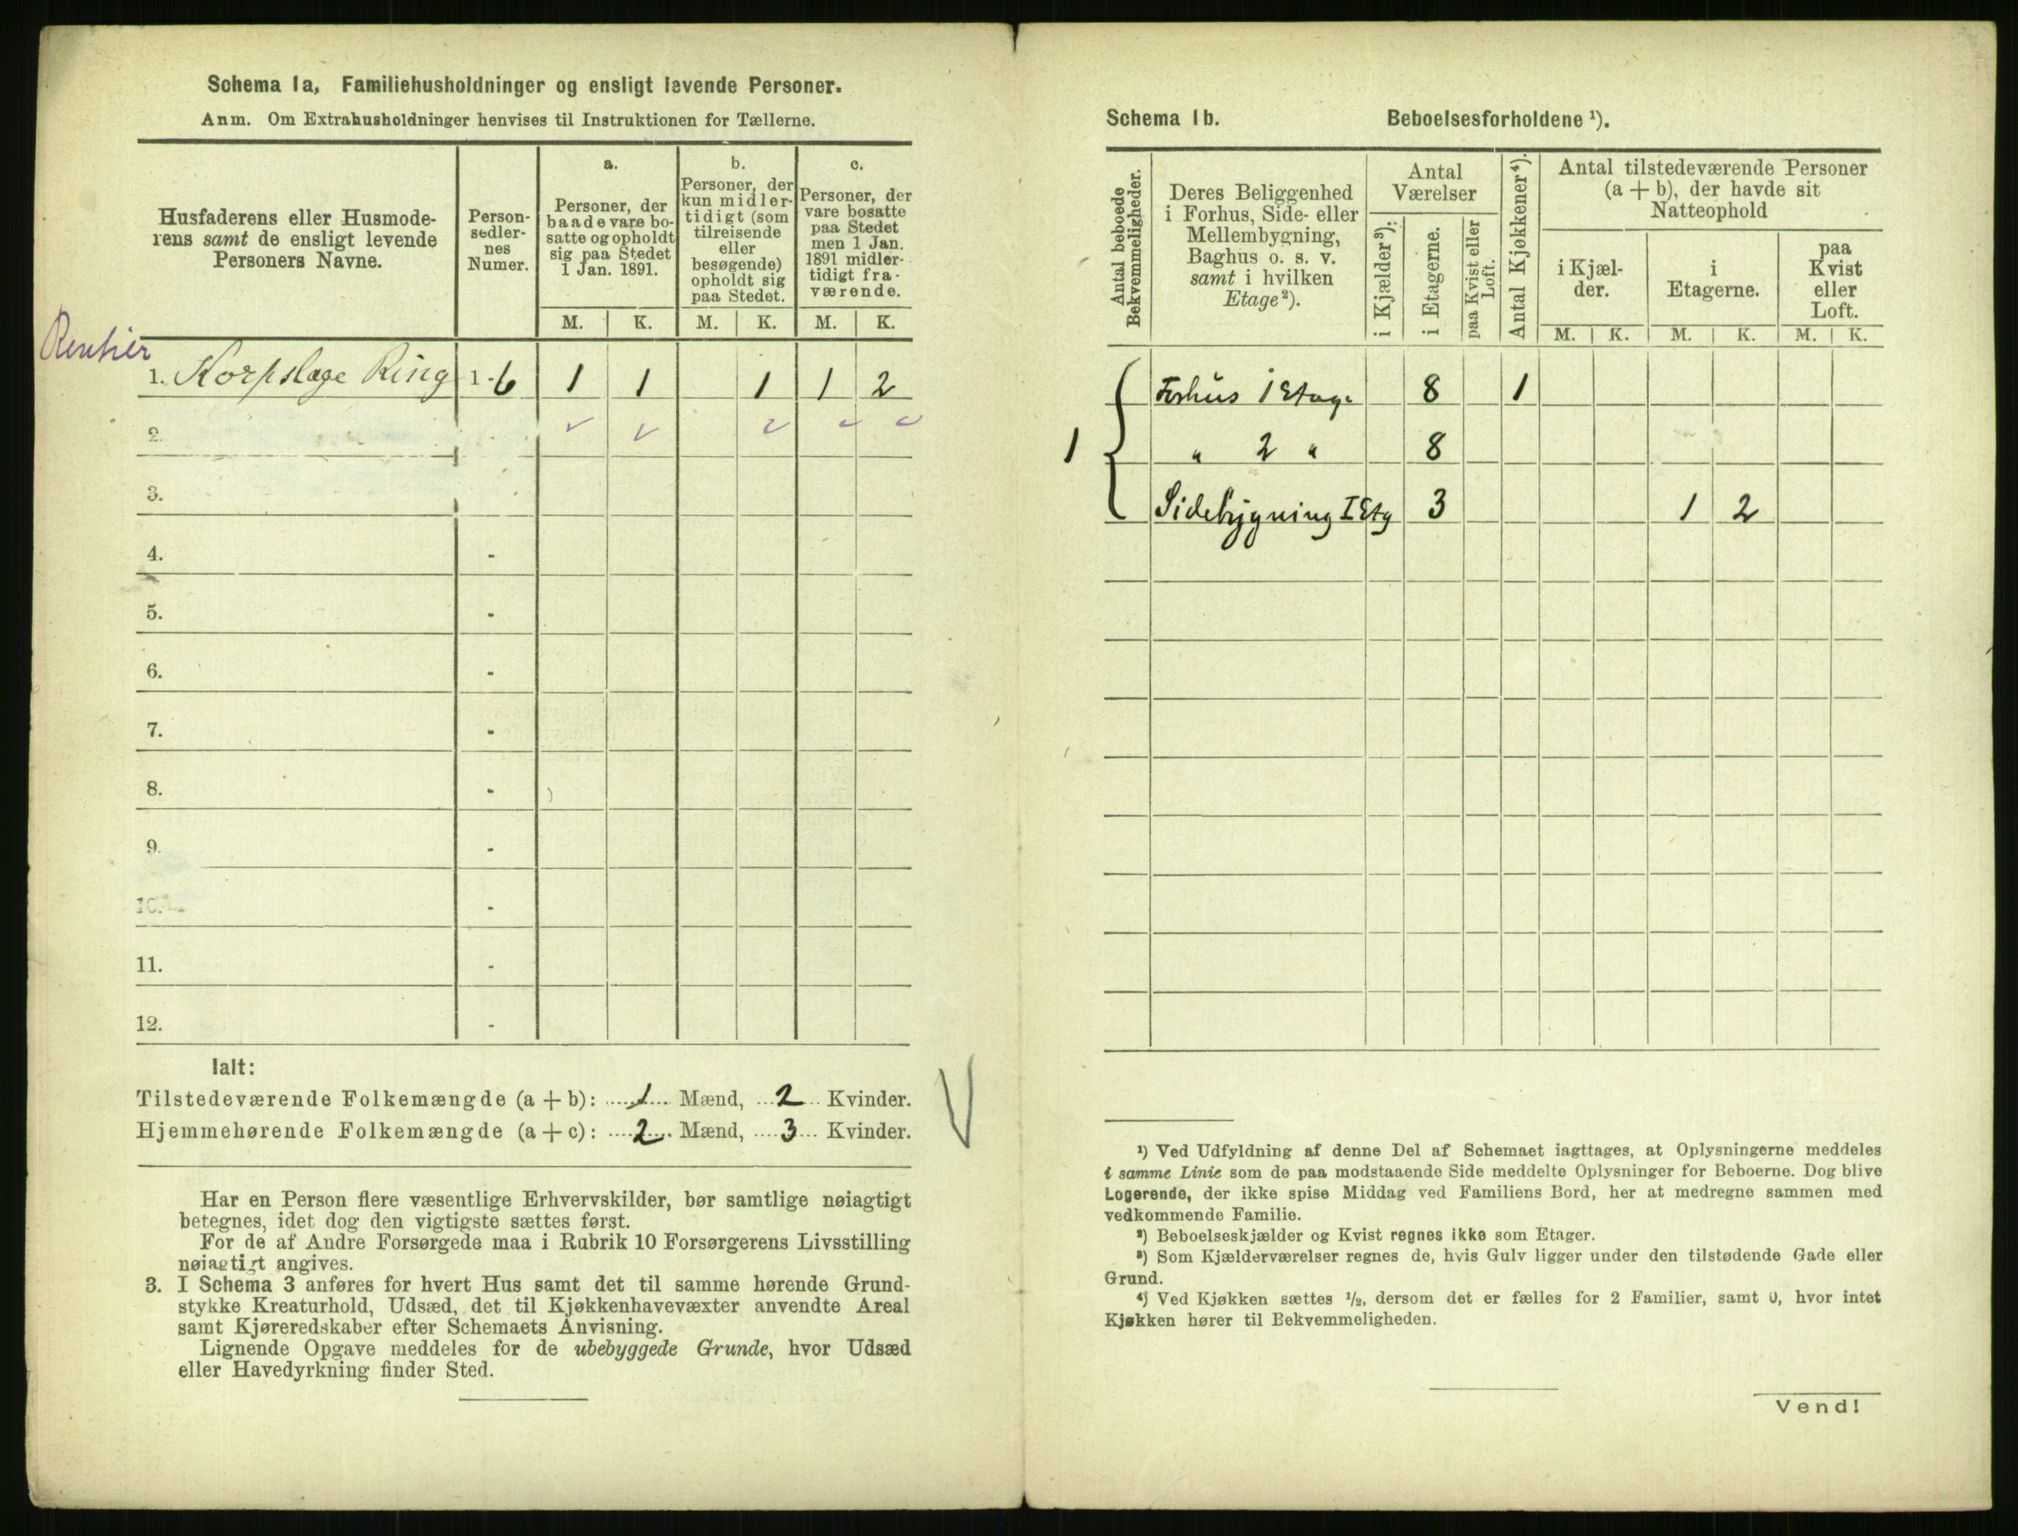 Schema 1a, Familiehusholdninger og ensligt levende Personer.
Anm. Om Extrahusholdninger henvises til Instruktionen for Tællerne.
Husfaderens eller Husmoderens samt de ensligt levende Personers Navne.
Personsedlernes Numer.
a.
Personer, der baade vare bosatte og opholdt sig paa Stedet 1 Jan. 1891.
b.
Personer, der kun midlertidigt (som tilreisende eller besøgende) opholdt sig paa Stedet.
c.
Personer, der vare bosatte paa Stedet men 1 Jan. 1891 midlertidigt fraværende.
M. K. M. K. M. K.
Rentier
1. Korpslæge Ring 1-6 1 1 1 1 2
2.
3.
4. -
5. -
6. -
7. -
8. -
9. -
10. -
11. -
12. -
Ialt:
Tilstedeværende Folkemængde (a + b): 1 Mænd, 2 Kvinder.
Hjemmehørende Folkemængde (a + c): 2 Mænd, 3 Kvinder.
Har en Person flere væsentlige Erhvervskilder, bør samtlige nøiagtigt
betegnes, idet dog den vigtigste sættes først.
For de af Andre Forsørgede maa i Rubrik 10 Forsørgerens Livsstilling
nøiagtigt angives.
3. I Schema 3 anføres for hvert Hus samt det til samme hørende Grund-
stykke Kreaturhold, Udsæd, det til Kjøkkenhavevæxter anvendte Areal
samt Kjøreredskaber efter Schemaets Anvisning.
Lignende Opgave meddeles for de ubebyggede Grunde, hvor Udsæd
eller Havedyrkning finder Sted.
Schema 1b. Beboelsesforholdene ¹).
Antal beboede Bekvemmeligheder.
Deres Beliggenhed i Forhus, Side- eller Mellembygning, Baghus o. s. v. samt i hvilken Etage ²).
Antal Værelser
i Kjælder ³):
i Etagerne.
paa Kvist eller Loft.
Antal Kjøkkener ⁴).
Antal tilstedeværende Personer (a + b), der havde sit Natteophold
i Kjælder.
i Etagerne.
paa Kvist eller Loft.
M. K. M. K. M. K.
Forhus 1 Etage 8 1
1 " 2 " 8
Sidebygning I Etg 3 1 2
¹) Ved Udfyldning af denne Del af Schemaet iagttages, at Oplysningerne meddeles
i samme Linie som de paa modstaaende Side meddelte Oplysninger for Beboerne. Dog blive
Logerende, der ikke spise Middag ved Familiens Bord, her at medregne sammen med
vedkommende Familie.
²) Beboelseskjælder og Kvist regnes ikke som Etager.
³) Som Kjælderværelser regnes de, hvis Gulv ligger under den tilstødende Gade eller
Grund.
⁴) Ved Kjøkken sættes ¹/₂, dersom det er fælles for 2 Familier, samt 0, hvor intet
Kjøkken hører til Bekvemmeligheden.
Vend!